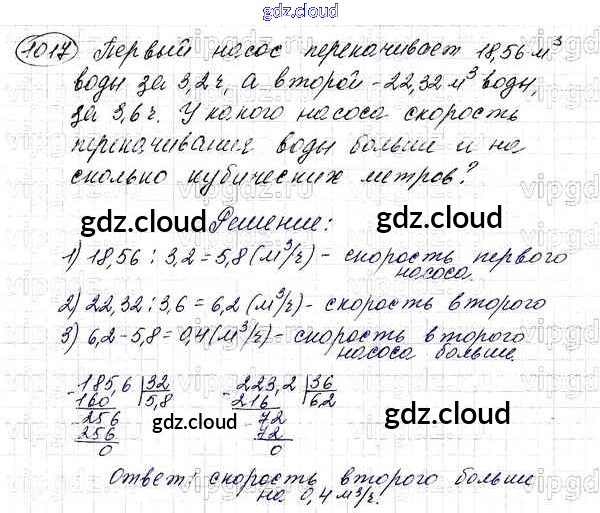 gdz.cloud
1017 Первый насос перекачивает 18,56 м³
воды за 3,2 ч, а второй - 22,32 м³ воды,
за 3,6 ч. У какого насоса скорость
перекачивания воды больше и на
сколько кубических метров?
gdz.cloud Решение: gdz.cloud
1) 18,56 : 3,2 = 5,8 (м³/ч) - скорость первого
насоса.
2) 22,32 : 3,6 = 6,2 (м³/ч) - скорость второго
3) 6,2 - 5,8 = 0,4 (м³/ч) - скорость второго
насоса больше.
- 185,6 | 32 - 223,2 | 36
160 5,8 216 6,2
- 256 - 72
256 72
0 0
gdz.cloud gdz.cloud
Ответ: скорость второго больше
на 0,4 м³/ч.